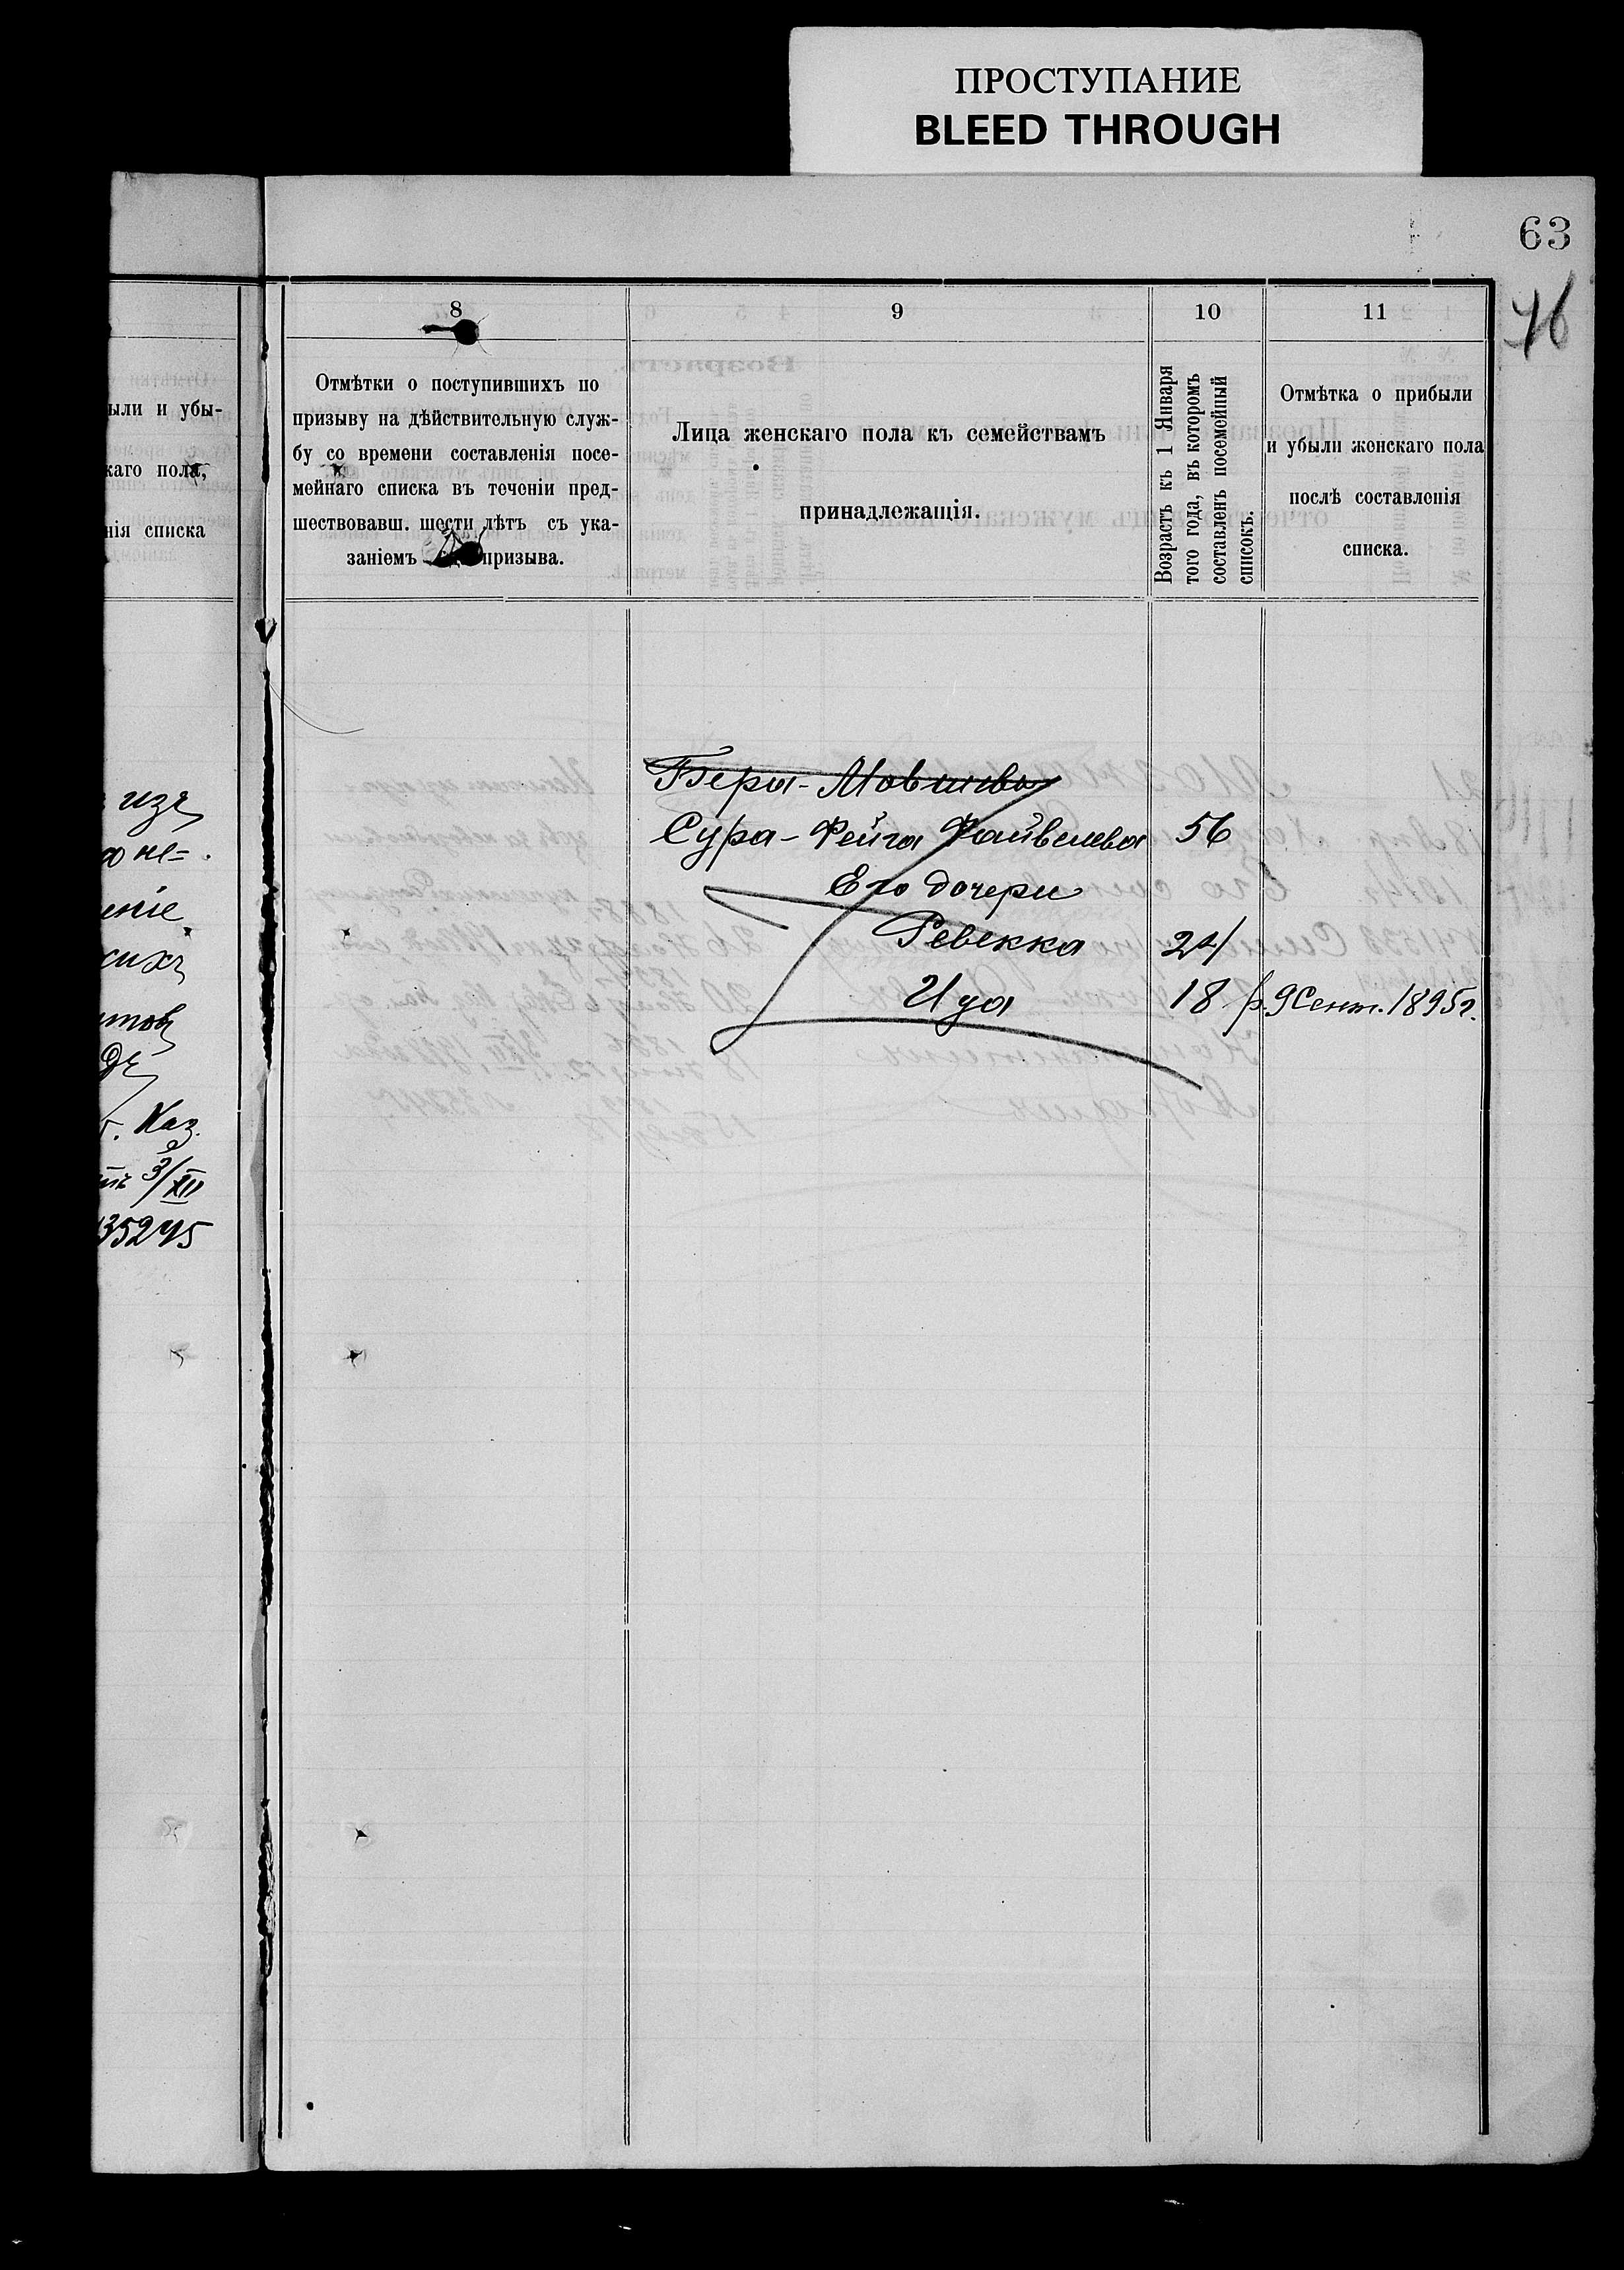 ПРОСТУПАНИЕ
BLEED THROUGH
63
76
ыли и убы-
каго пола,
нія списка
изъ
не=
еніе
сихъ
Каз.
3/XII
35245
8
Отмѣтки о поступившихъ по
призыву на дѣйствительную служ-
бу со времени составленія посе-
мейнаго списка въ теченіи пред-
шествовавш. шести лѣтъ съ ука-
заніемъ призыва.
9
Лица женскаго пола къ семействамъ
принадлежащія.
10
Возрастъ къ 1 Января
того года, въ которомъ
составленъ посемейный
списокъ.
11
Отмѣтка о прибыли
и убыли женскаго пола
послѣ составленія
списка.
Бера-Мовшева
Сура-Фейга Файвелева 56
Его дочери
Ревекка 24
Ида 18 р. 9 Сент. 1895 г.